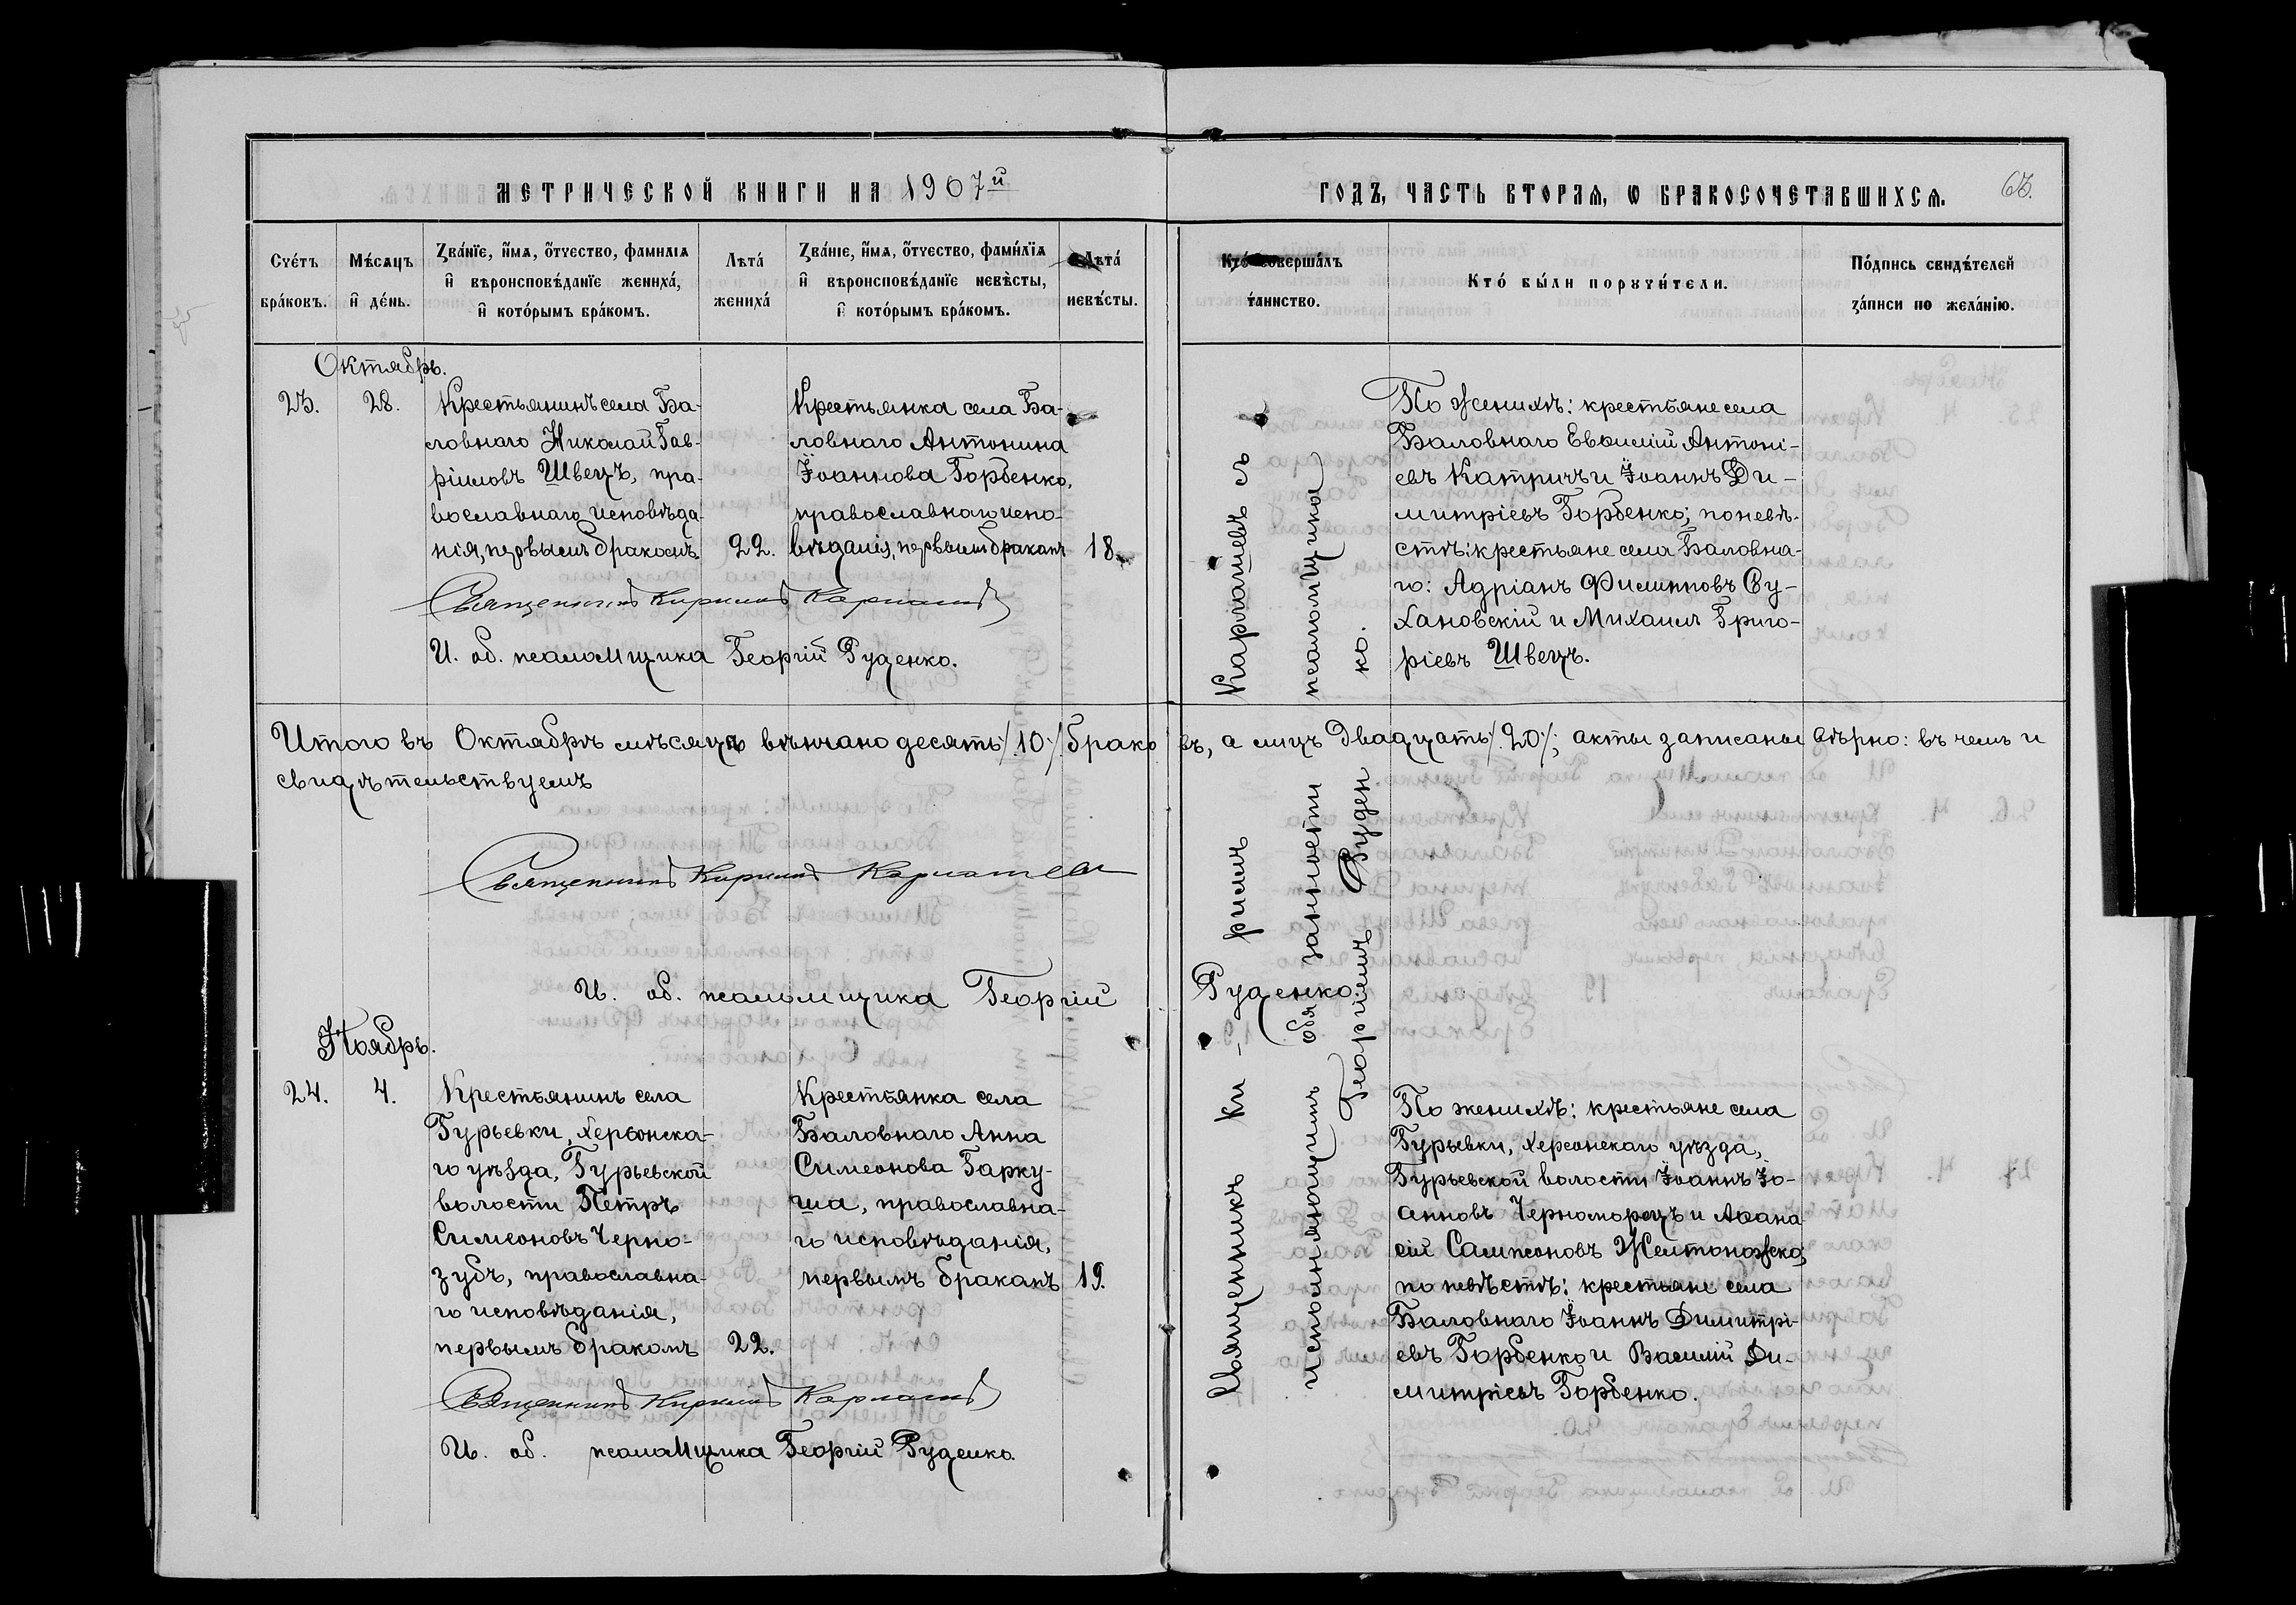 МЕТРИЧЕСКОЙ КНИГИ НА 1907й
ГОДЪ, ЧАСТЬ ВТОРАЯ, Ѡ БРАКОСОЧЕТАВШИХСЯ.
63.
Счетъ браковъ.
Мѣсяцъ и день.
Званіе, имя, отчество, фамилія
и вѣроисповѣданіе жениха,
и которымъ бракомъ.
Лѣта жениха
Званіе, имя, отчество, фамилія
и вѣроисповѣданіе невѣсты,
и которымъ бракомъ.
Лѣта невѣсты.
Кто совершалъ
таинство.
Кто были поручители.
Подпись свидѣтелей
записи по желанію.
Октябрь.
23.
28.
Крестьянинъ села Ба-
ловнаго Николай Гав-
рiиловъ Швецъ, пра-
вославнаго исповѣда-
нія, первымъ бракомъ
22.
Крестьянка села Ба-
ловнаго Антонина
Іоаннова Горбенко,
православнаго испо-
вѣданія, первымъ бракомъ
18.
По женихѣ: крестьяне села
Баловнаго Евѳимій Антоні-
евъ Катричъ и Іоаннъ Ди-
митріевъ Горбенко; по невѣ-
стѣ: крестьяне села Баловна-
го: Адріанъ Филипповъ Су-
хановскій и Михаилъ Григо-
ріевъ Швецъ.
Священникъ Кириллъ
И. об. псаломщика Георгій Руденко.
Итого въ Октябрѣ мѣсяцѣ вѣнчано десять /.10./ браковъ, а лицъ двадцать /.20./; акты записаны вѣрно: въ чемъ и
свидѣтельствуемъ
Священникъ Кириллъ
И. об. псаломщика Георгій Руденко.
Ноябрь.
24.
4.
Крестьянинъ села
Гурьевки, Херсонска-
го уѣзда, Гурьевской
волости Петръ
Симеоновъ Черно-
зубъ, православна-
го исповѣданія,
первымъ бракомъ
22.
Крестьянка села
Баловнаго Анна
Симеонова Гарку-
ша, православна-
го исповѣданія,
первымъ бракомъ
19.
По женихѣ: крестьяне села
Гурьевки, Херсонскаго уѣзда,
Гурьевской волости Іоаннъ Іо-
анновъ Черноморецъ и Аѳана-
сій Сампсоновъ Желтоножско;
по невѣстѣ: крестьяне села
Баловнаго Іоаннъ Димитрі-
евъ Горбенко и Василій Ди-
митріевъ Горбенко.
Священникъ Кириллъ
И. об. псаломщика Георгій Руденко.
Священникъ Ки-риллъ Карпашевъ съ
исполняющимъ обязанности псаломщика
Георгіемъ Руденко.